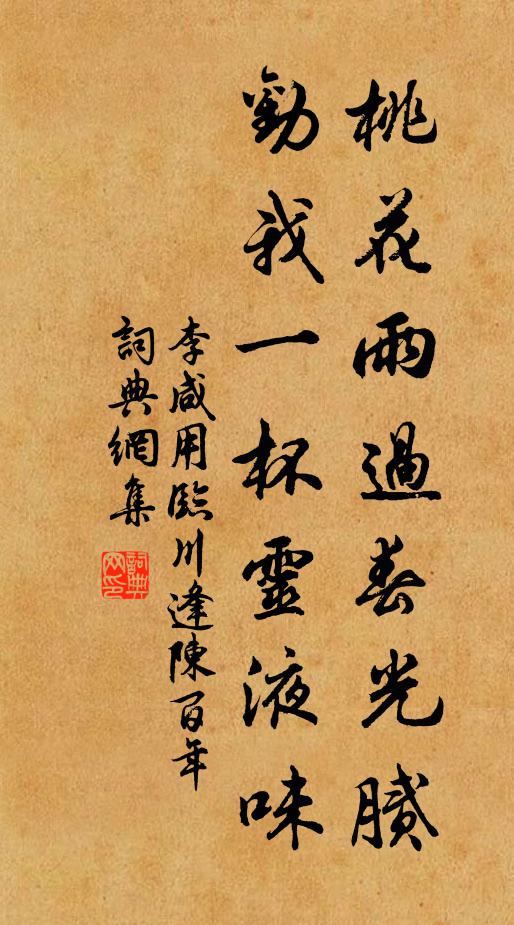 桃花雨過春光膩
勸我一杯靈液味
李咸用臨川逢陳百年
詞典網集
詞典網印